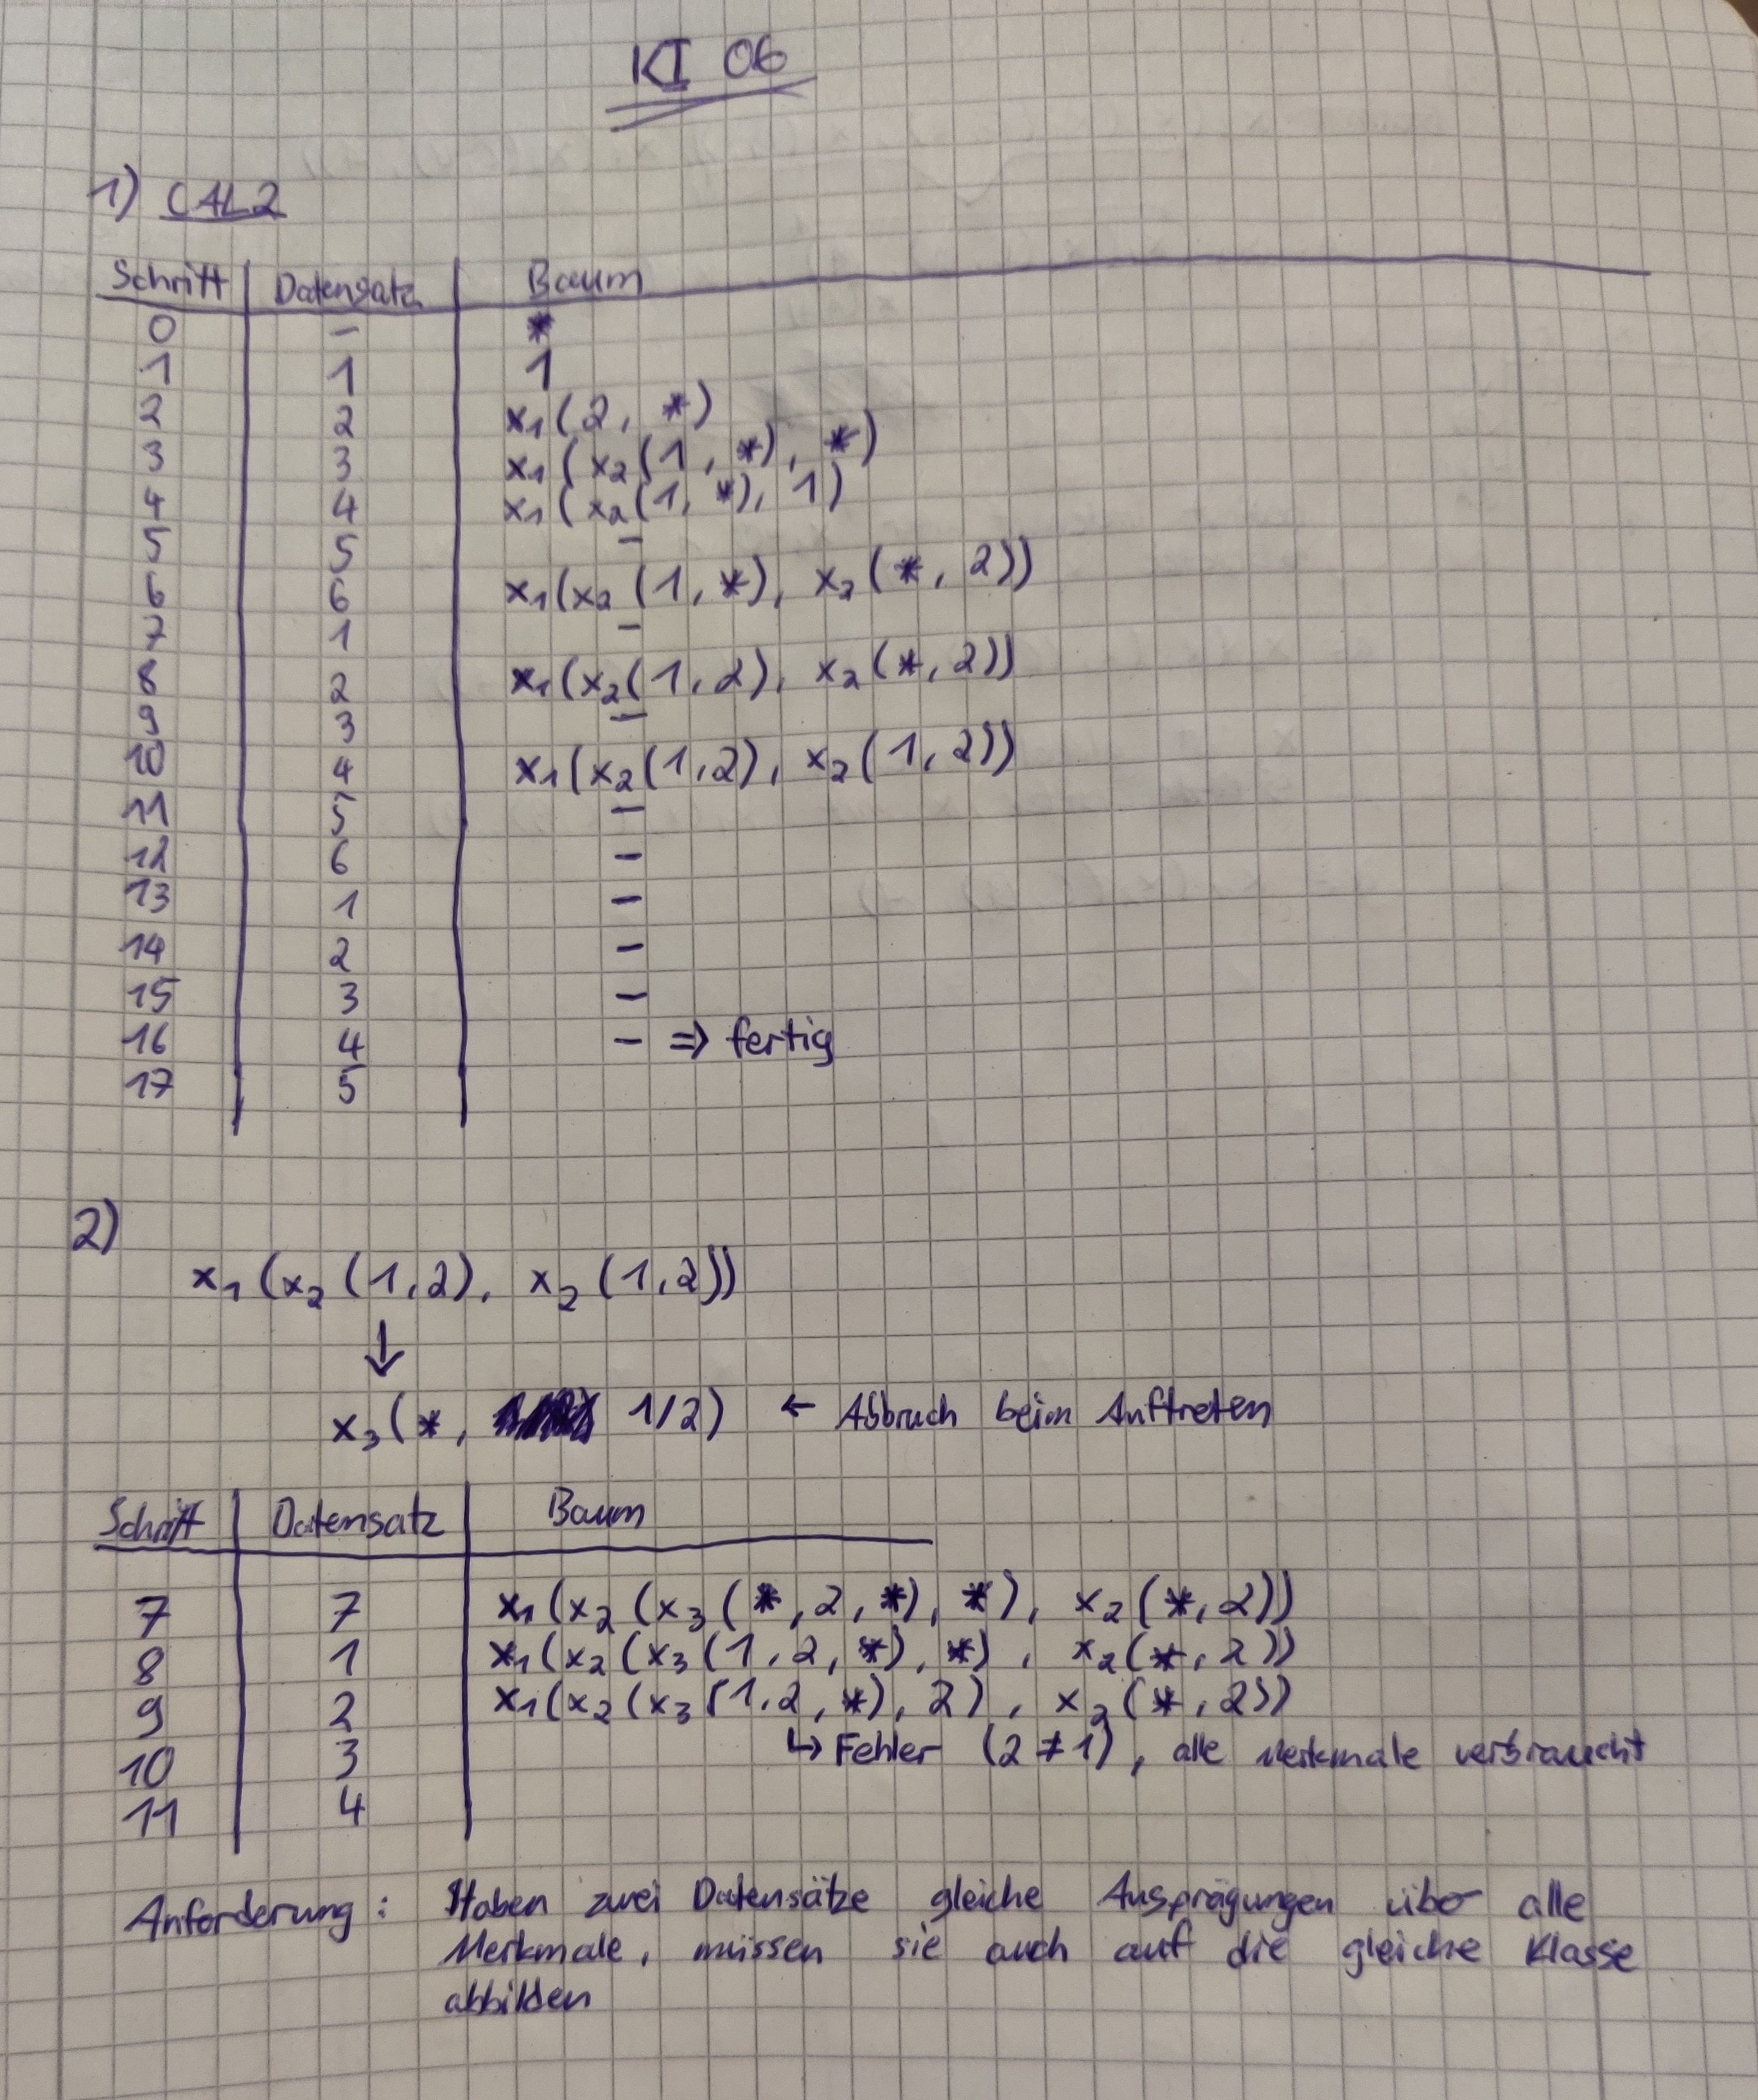 KI 06
1) CAL2
Schritt | Datensatz | Baum
0 | – | *
1 | 1 | 1
2 | 2 | x₁(2, *)
3 | 3 | x₁(x₂(1, *), *)
4 | 4 | x₁(x₂(1, *), 1)
5 | 5 | –
6 | 6 | x₁(x₂(1, *), x₂(*, 2))
7 | 1 | –
8 | 2 | x₁(x₂(1,2), x₂(*, 2))
9 | 3 | –
10 | 4 | x₁(x₂(1,2), x₂(1, 2))
11 | 5 | –
12 | 6 | –
13 | 1 | –
14 | 2 | –
15 | 3 | –
16 | 4 | – ⇒ fertig
17 | 5
2)
x₁(x₂(1,2), x₂(1,2))
↓
x₃(*, 1/2) ← Abbruch beim Auftreten
Schritt | Datensatz | Baum
7 | 7 | x₁(x₂(x₃(*,2,*),*), x₂(*,2))
8 | 1 | x₁(x₂(x₃(1,2,*),*), x₂(*,2))
9 | 2 | x₁(x₂(x₃(1,2,*),2), x₂(*,2))
10 | 3 | ↳ Fehler (2≠1), alle Merkmale verbraucht
11 | 4
Anforderung: Haben zwei Datensätze gleiche Ausprägungen über alle
Merkmale, müssen sie auch auf die gleiche Klasse
abbilden